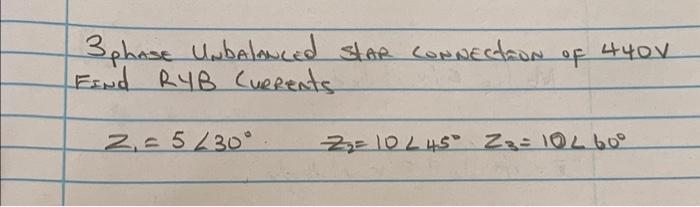 3 phase Unbalanced STAR CONNECTION OF 440V
FIND RYB CURRENTS
Z₁ = 5∠30° Z₂ = 10∠45° Z₃ = 10∠60°